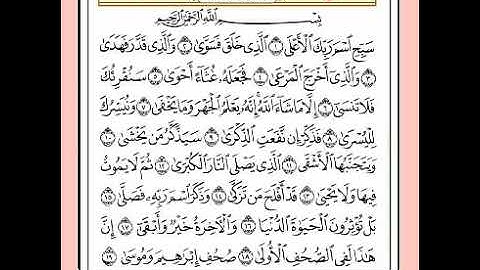 بِسْمِ اللَّهِ الرَّحْمَٰنِ الرَّحِيمِ
سَبِّحِ اسْمَ رَبِّكَ الْأَعْلَى ١ الَّذِي خَلَقَ فَسَوَّىٰ ٢ وَالَّذِي قَدَّرَ فَهَدَىٰ
٣ وَالَّذِي أَخْرَجَ الْمَرْعَىٰ ٤ فَجَعَلَهُ غُثَاءً أَحْوَىٰ ٥ سَنُقْرِئُكَ
فَلَا تَنسَىٰ ٦ إِلَّا مَا شَاءَ اللَّهُ إِنَّهُ يَعْلَمُ الْجَهْرَ وَمَا يَخْفَىٰ ٧ وَنُيَسِّرُكَ
لِلْيُسْرَىٰ ٨ فَذَكِّرْ إِن نَّفَعَتِ الذِّكْرَىٰ ٩ سَيَذَّكَّرُ مَن يَخْشَىٰ ١٠
وَيَتَجَنَّبُهَا الْأَشْقَى ١١ الَّذِي يَصْلَى النَّارَ الْكُبْرَىٰ ١٢ ثُمَّ لَا يَمُوتُ
فِيهَا وَلَا يَحْيَىٰ ١٣ قَدْ أَفْلَحَ مَن تَزَكَّىٰ ١٤ وَذَكَرَ اسْمَ رَبِّهِ فَصَلَّىٰ ١٥
بَلْ تُؤْثِرُونَ الْحَيَوٰةَ الدُّنْيَا ١٦ وَالْآخِرَةُ خَيْرٌ وَأَبْقَىٰ ١٧ إِنَّ
هَٰذَا لَفِي الصُّحُفِ الْأُولَىٰ ١٨ صُحُفِ إِبْرَٰهِيمَ وَمُوسَىٰ ١٩